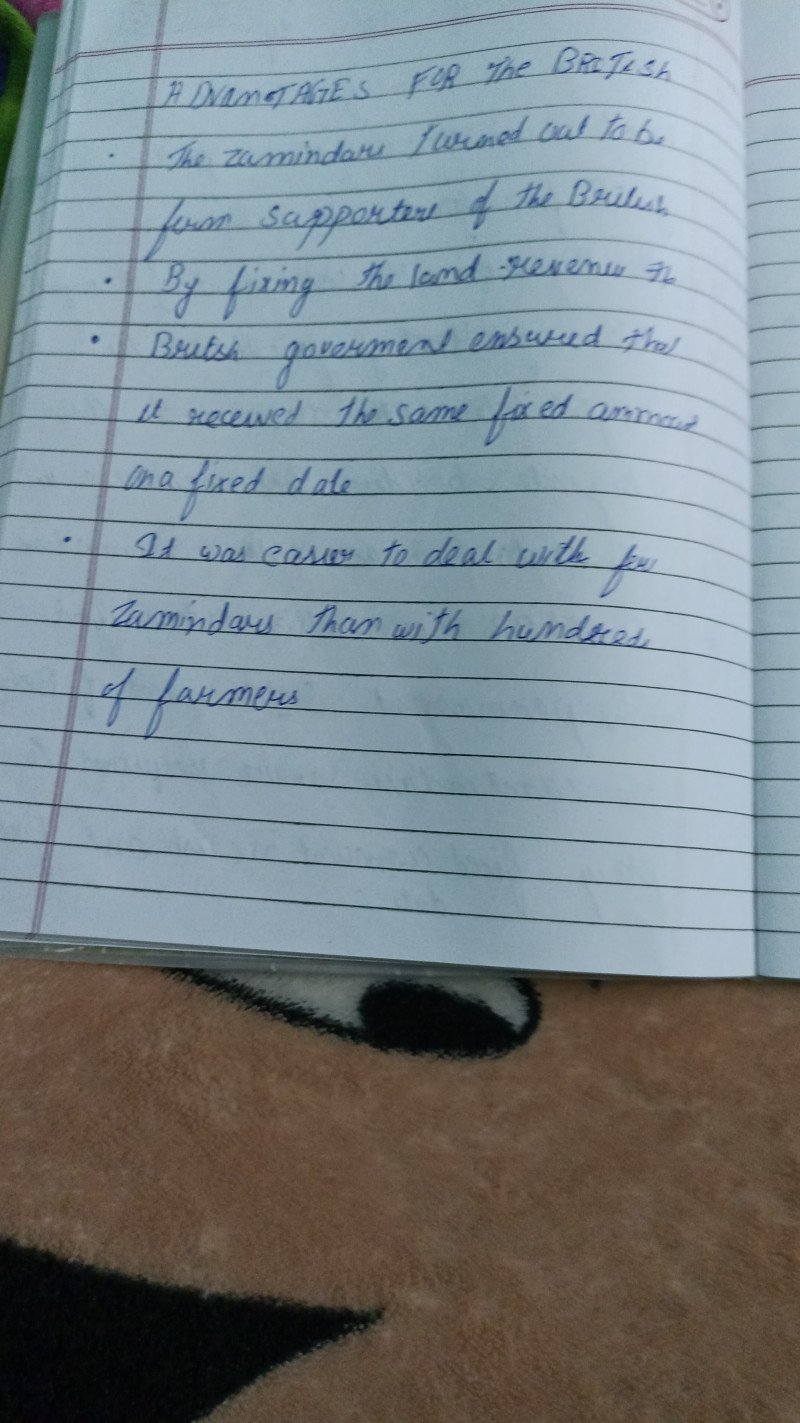 ADVANOTAGES FOR The BRITISh
· The zamindars turned out to be
firm supporters of the British
· By fixing the land revenue the
· British goverment ensured that
it received the same fixed ammout
on a fixed date
· It was easier to deal with few
zamindars than with hundreds
of farmers